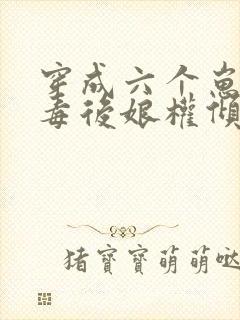 穿成六个崽
毒後娘權傾
猪寶寶萌萌噠